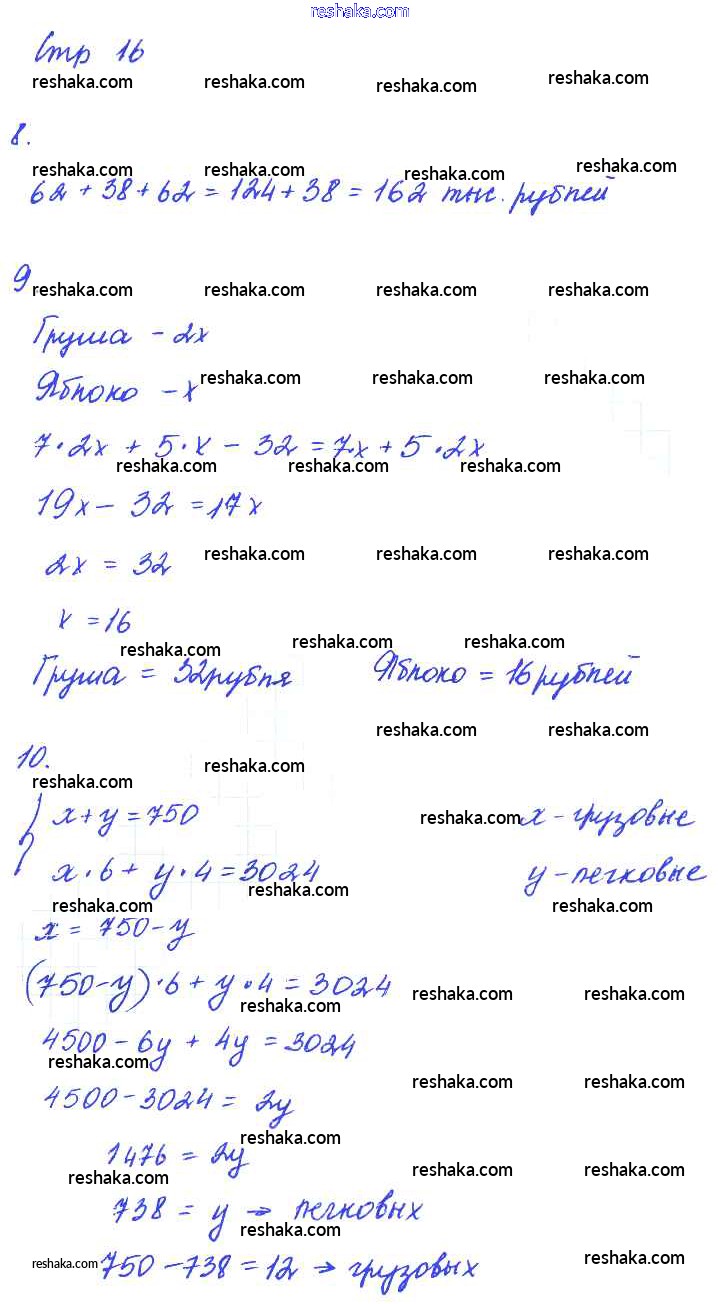 reshaka.com
Стр 16
reshaka.com reshaka.com reshaka.com reshaka.com
8.
reshaka.com reshaka.com reshaka.com reshaka.com
62 + 38 + 62 = 124 + 38 = 162 тыс. рублей
9
reshaka.com reshaka.com reshaka.com reshaka.com
Груша - 2x
Яблоко - x
reshaka.com reshaka.com reshaka.com
7·2x + 5·x - 32 = 7x + 5·2x
reshaka.com reshaka.com reshaka.com
19x - 32 = 17x
2x = 32
reshaka.com reshaka.com reshaka.com
x = 16
reshaka.com reshaka.com reshaka.com
Груша = 32 рубля Яблоко = 16 рублей
reshaka.com reshaka.com
10.
reshaka.com reshaka.com
{ x + y = 750 x - грузовые
reshaka.com
x·6 + y·4 = 3024 y - легковые
reshaka.com reshaka.com reshaka.com
x = 750 - y
(750 - y)·6 + y·4 = 3024
reshaka.com reshaka.com reshaka.com
4500 - 6y + 4y = 3024
reshaka.com
4500 - 3024 = 2y
reshaka.com reshaka.com
reshaka.com
1476 = 2y
reshaka.com reshaka.com reshaka.com
738 = y → легковых
reshaka.com
reshaka.com 750 - 738 = 12 → грузовых
reshaka.com